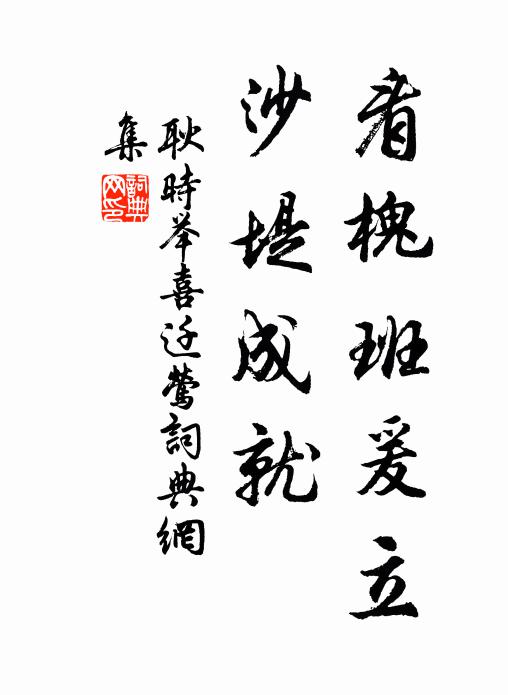 看槐班爰立
沙堤成就
耿時举喜迁鶯詞典網
集
詞典
网印